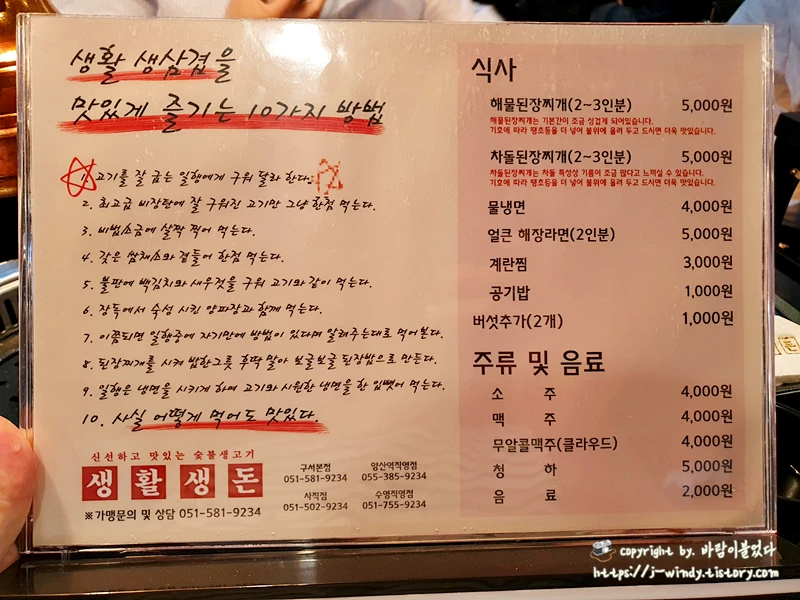 생활 생삼겹을
맛있게 즐기는 10가지 방법
1. 고기를 잘 굽는 일행에게 구워 달라 한다.
2. 최고급 비장탄에 잘 구워진 고기만 그냥 한점 먹는다.
3. 비법소금에 살짝 찍어 먹는다.
4. 갖은 쌈채소와 곁들어 한점 먹는다.
5. 불판에 백김치와 새우젓을 구워 고기와 같이 먹는다.
6. 장독에서 숙성 시킨 양파장과 함께 먹는다.
7. 이쯤되면 일행중에 자기만에 방법이 있다며 알려주는대로 먹어본다.
8. 된장찌개를 시켜 밥한그릇 후딱 말아 보글보글 된장밥으로 만든다.
9. 일행은 냉면을 시키게 하며 고기와 시원한 냉면을 한 입뺏어 먹는다.
10. 사실 어떻게 먹어도 맛있다.
신선하고 맛있는 숯불생고기
생활생돈
구서본점
051-581-9234
양산역직영점
055-385-9234
사직점
051-502-9234
수영직영점
051-755-9234
※가맹문의 및 상담 051-581-9234
식사
해물된장찌개(2~3인분) 5,000원
해물된장찌개는 기본간이 조금 싱겁게 되어있습니다.
기호에 따라 땡초등을 더 넣어 불위에 올려 두고 드시면 더욱 맛있습니다.
차돌된장찌개(2~3인분) 5,000원
차돌된장찌개는 차돌 특성성 기름이 조금 많다고 느끼실 수 있습니다.
기호에 따라 땡초등을 더 넣어 불위에 올려 두고 드시면 더욱 맛있습니다.
물냉면 4,000원
얼큰 해장라면(2인분) 5,000원
계란찜 3,000원
공기밥 1,000원
버섯추가(2개) 1,000원
주류 및 음료
소 주 4,000원
맥 주 4,000원
무알콜맥주(클라우드) 4,000원
청 하 5,000원
음 료 2,000원
copyright by. 바람이불었다
https://j-windy.tistory.com